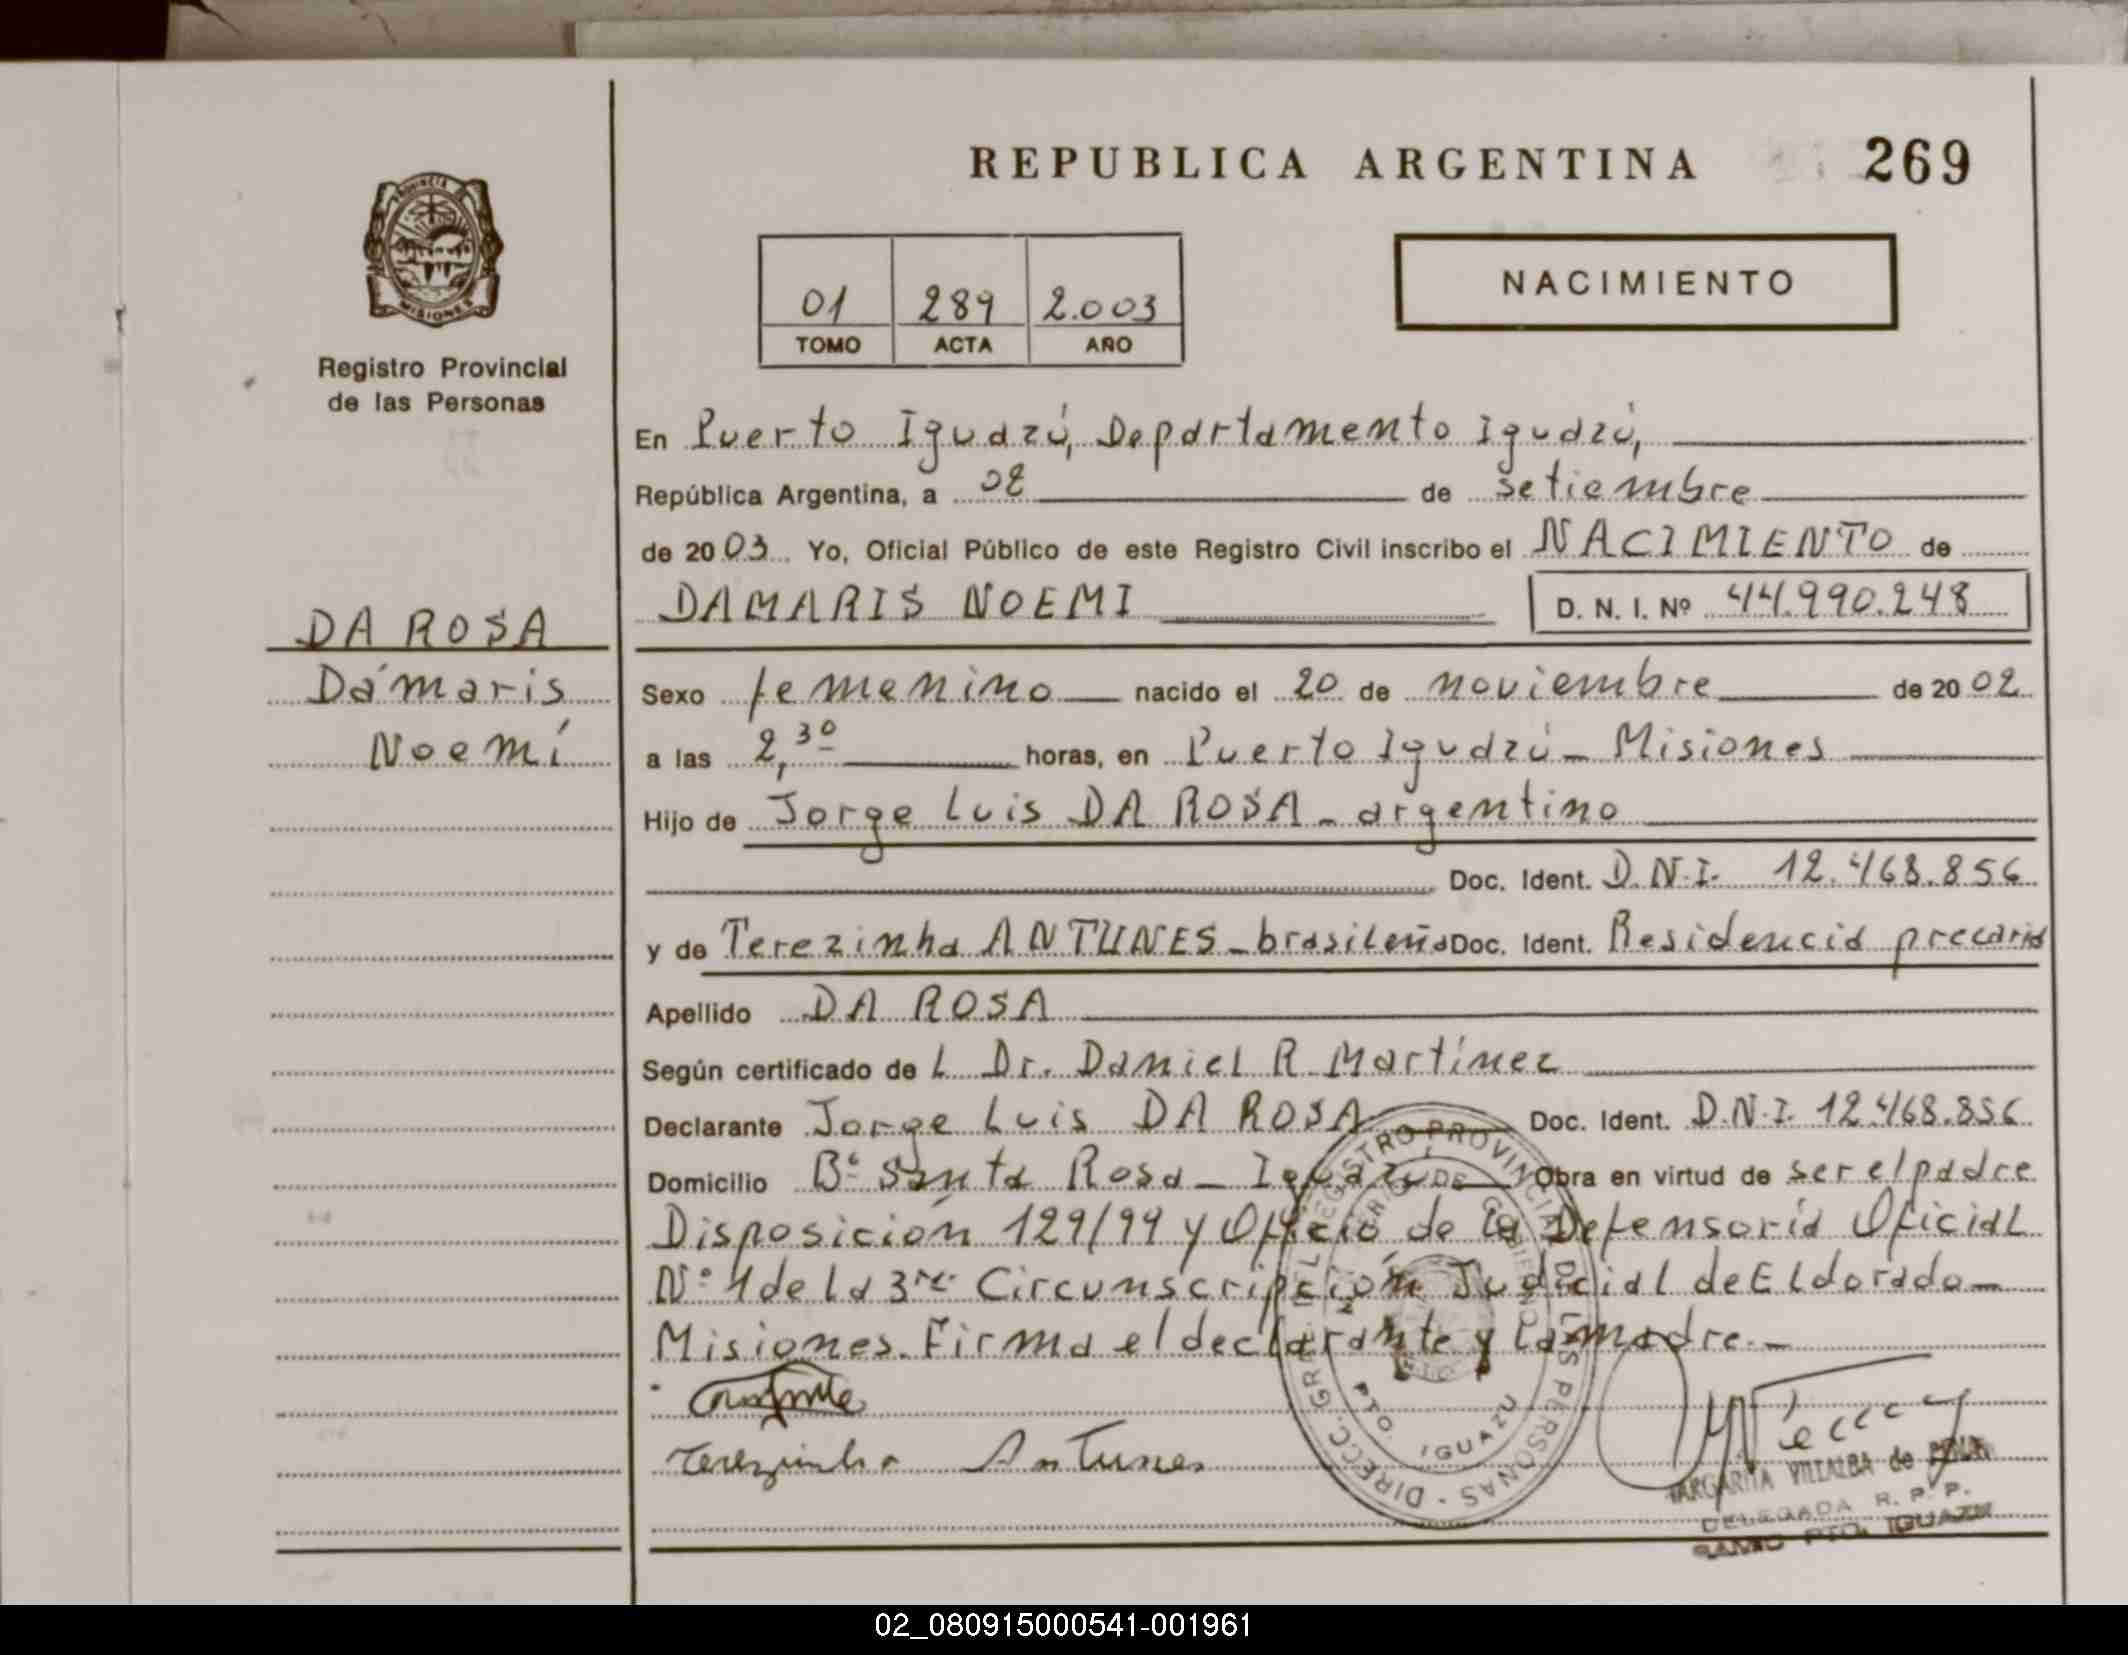 REPUBLICA ARGENTINA 269
PROVINCIA DE
MISIONES
Registro Provincial
de las Personas
NACIMIENTO
01 289 2.003
TOMO ACTA AÑO
En Puerto Iguazú, Departamento Iguazú,
República Argentina, a 08 de setiembre
de 2003 Yo, Oficial Público de este Registro Civil inscribo el NACIMIENTO de
DAMARIS NOEMI D. N. I. Nº 44.990.248
DA ROSA
Dámaris
Noemí
Sexo femenino nacido el 20 de noviembre de 2002
a las 2,30 horas, en Puerto Iguazú - Misiones
Hijo de Jorge Luis DA ROSA - argentino
Doc. Ident. D.N.I. 12.468.856
y de Terezinha ANTUNES - brasileña Doc. Ident. Residencia precaria
Apellido DA ROSA
Según certificado de L Dr. Daniel R Martínez
Declarante Jorge Luis DA ROSA Doc. Ident. D.N.I. 12.468.856
Domicilio Bº Santa Rosa - Iguazú Obra en virtud de ser el padre
Disposición 129/99 y Oficio de la Defensoría Oficial
Nº 1 de la 3ra Circunscripción Judicial de Eldorado -
Misiones. Firma el declarante y la madre. -
Terezinha Antunes
DIRECC. GRAL. DEL REGISTRO PROVINCIAL DE LAS PERSONAS
PTO. IGUAZU
MARGARITA VILLALBA de
DELEGADA R. P. P.
PTO. IGUAZU
02_080915000541-001961